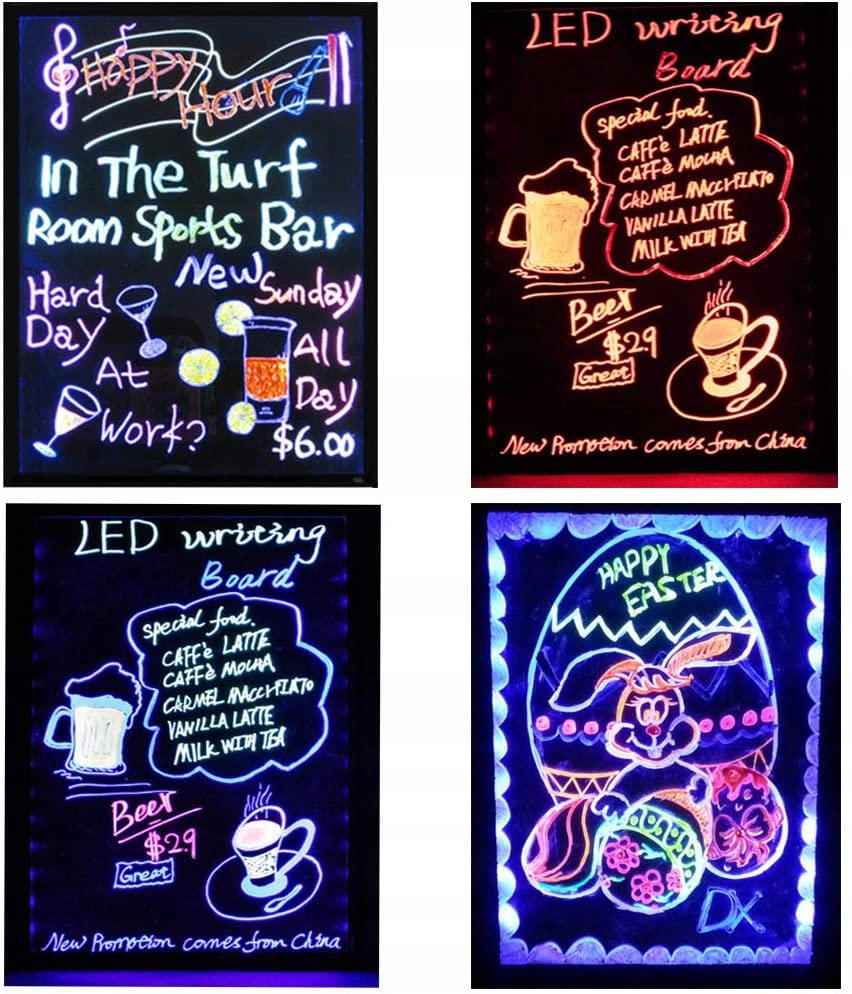 Happy
Hour
In The Turf
Room Sports Bar
New
Hard
Day
At
Work?
Sunday
All
Day
$6.00
LED writing
Board
special food.
CAFFè LATTE
CAFFè MOCHA
CARMEL MACCHIATO
VANILLA LATTE
MILK WITH TEA
Beer
$29
Great
New Promotion comes from China
LED writing
Board
special food.
CAFFè LATTE
CAFFè MOCHA
CARMEL MACCHIATO
VANILLA LATTE
MILK WITH TEA
Beer
$29
Great
New Promotion comes from China
HAPPY
EASTER
DX